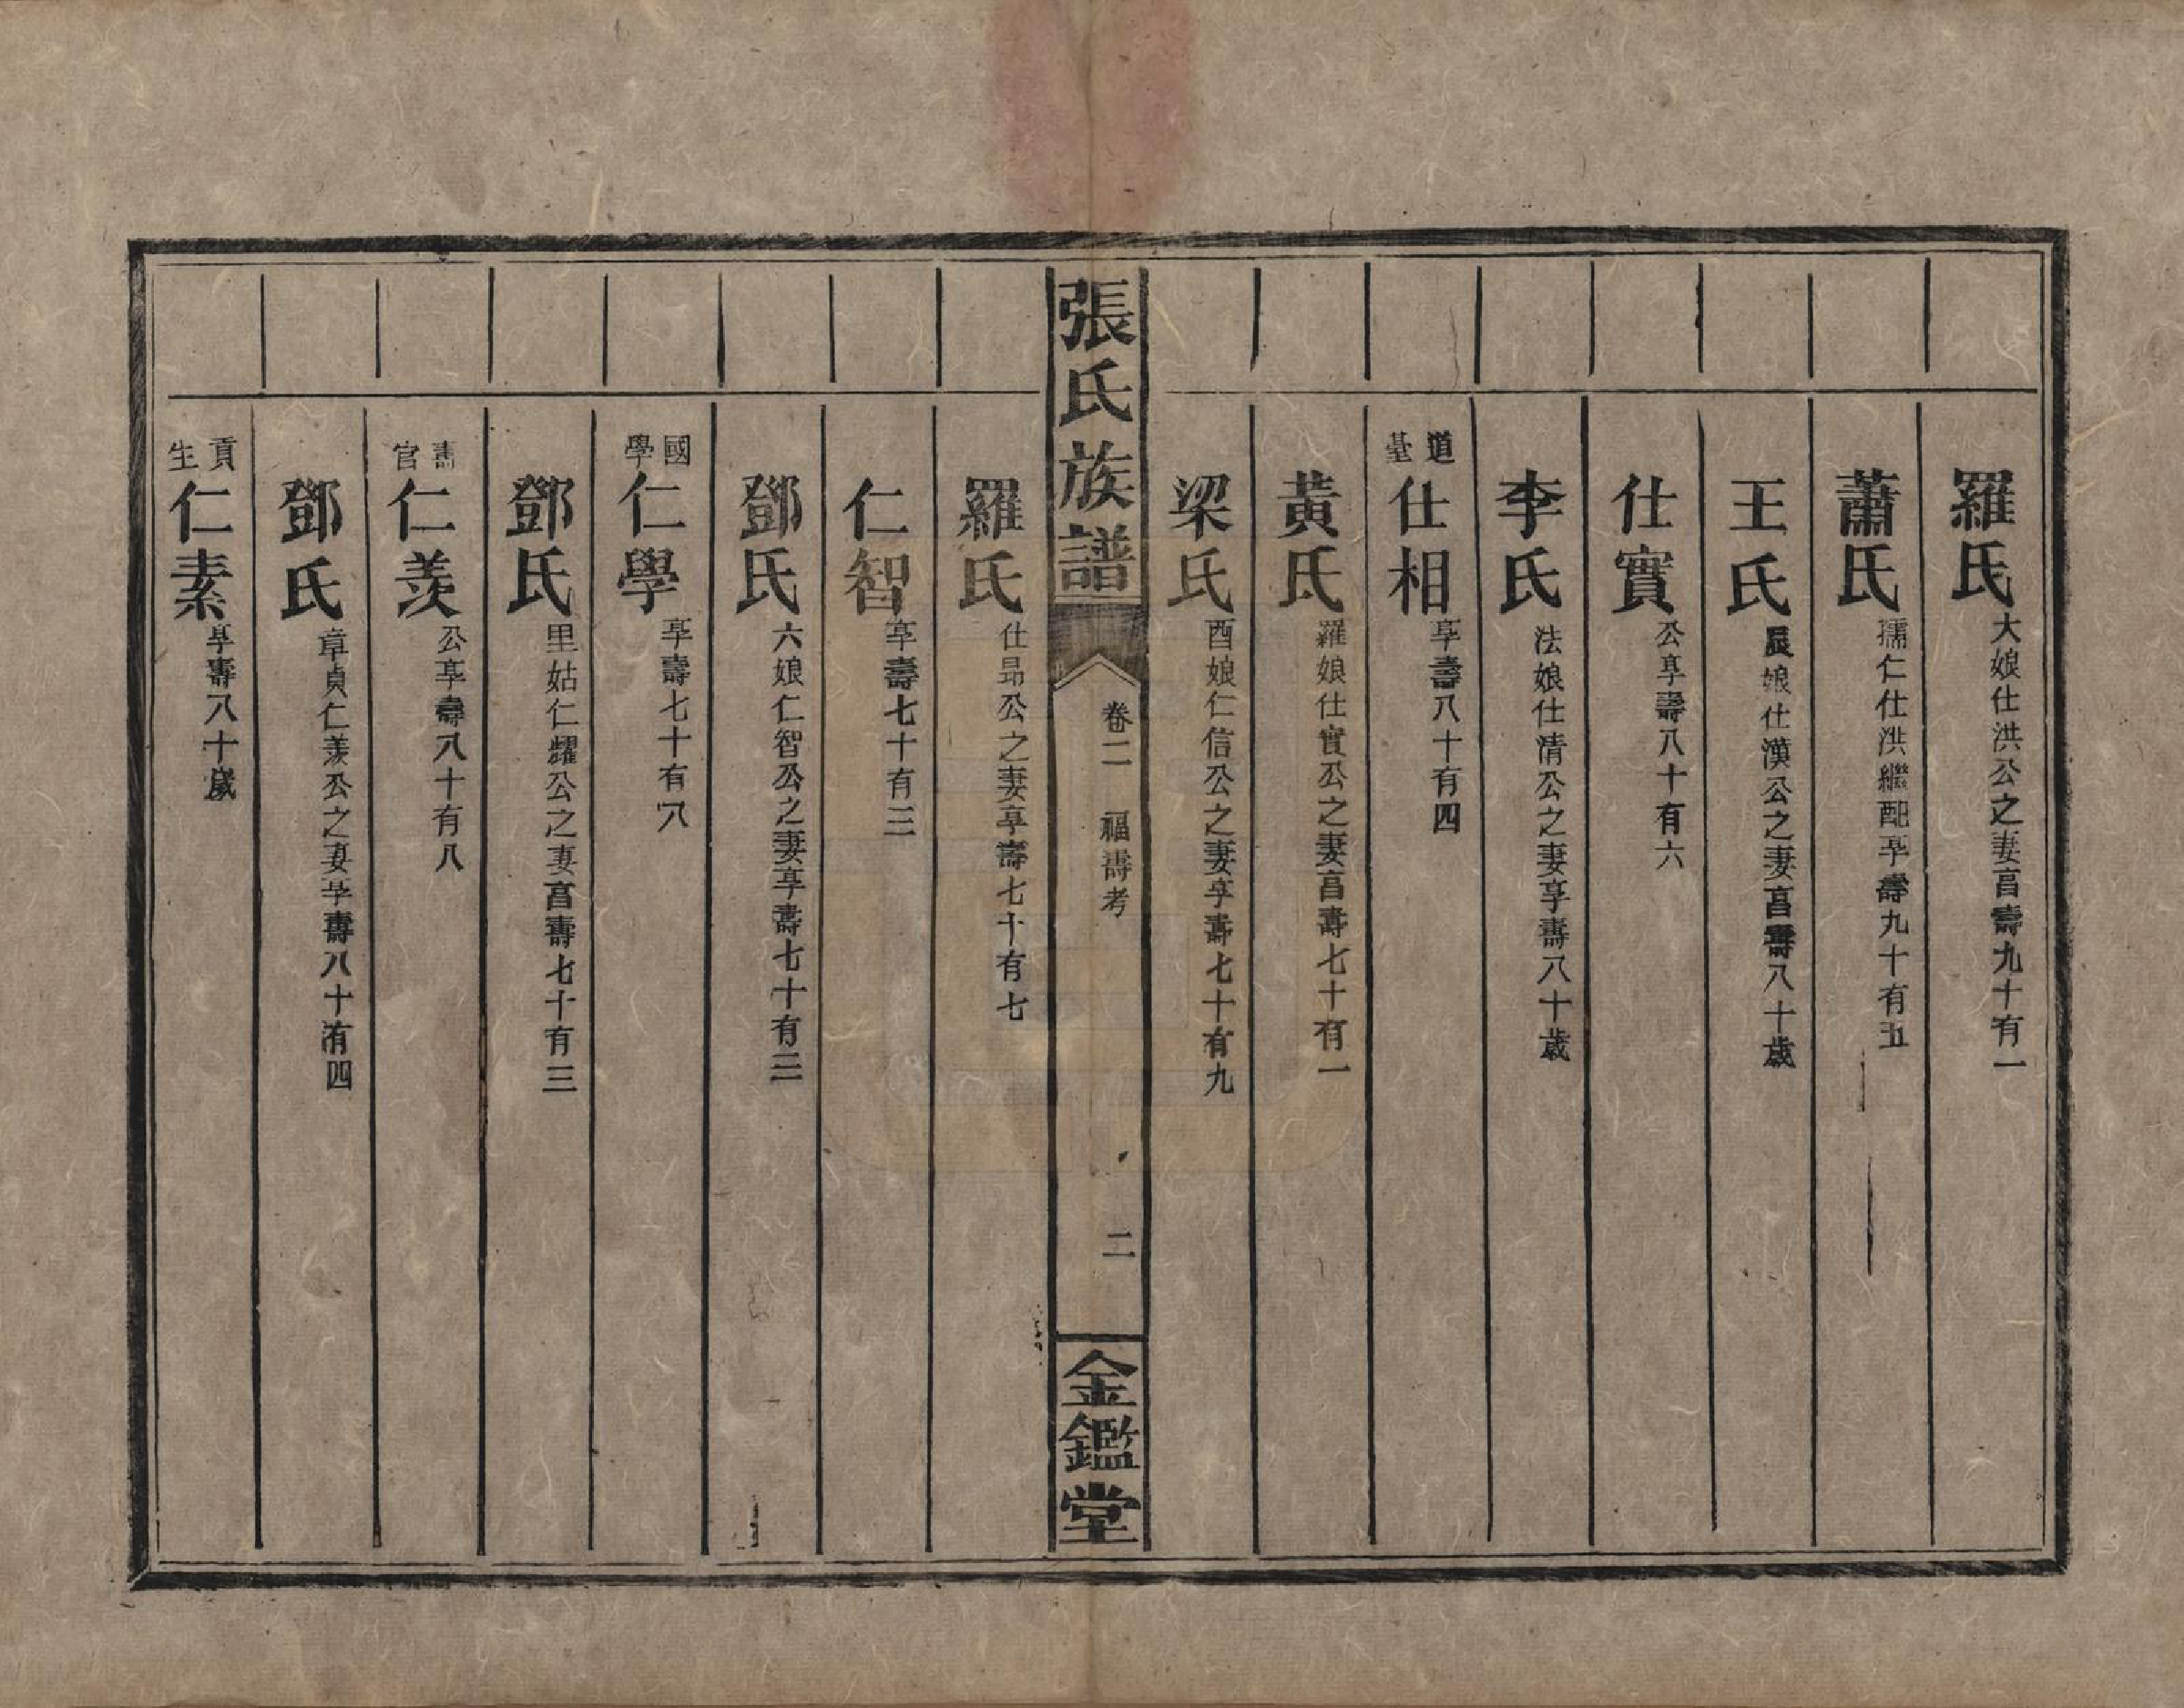 羅氏大娘仕洪公之妻亯壽九十有一
蕭氏孺仁仕洪繼配享壽九十有五
王氏辰娘仕漢公之妻亯壽八十歲
仕實公享壽八十有六
李氏法娘仕清公之妻享壽八十歲
道臺仕相享壽八十有四
黃氏羅娘仕實公之妻亯壽七十有一
梁氏酉娘仁信公之妻享壽七十有九
張氏族譜 卷二 福壽考 二 金鑑堂
羅氏仕昂公之妻享壽七十有七
仁智享壽七十有三
鄧氏六娘仁智公之妻享壽七十有三
國學仁學享壽七十有八
鄧氏里姑仁耀公之妻亯壽七十有三
壽官仁羨公享壽八十有八
鄧氏章貞仁羨公之妻享壽八十有四
貢生仁素享壽八十歲